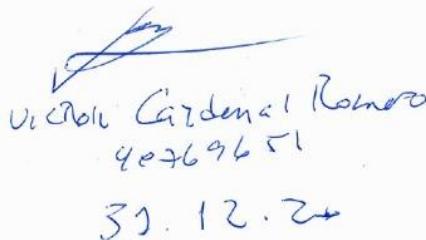 Victor Cardenal Romero
40769651
31.12.20